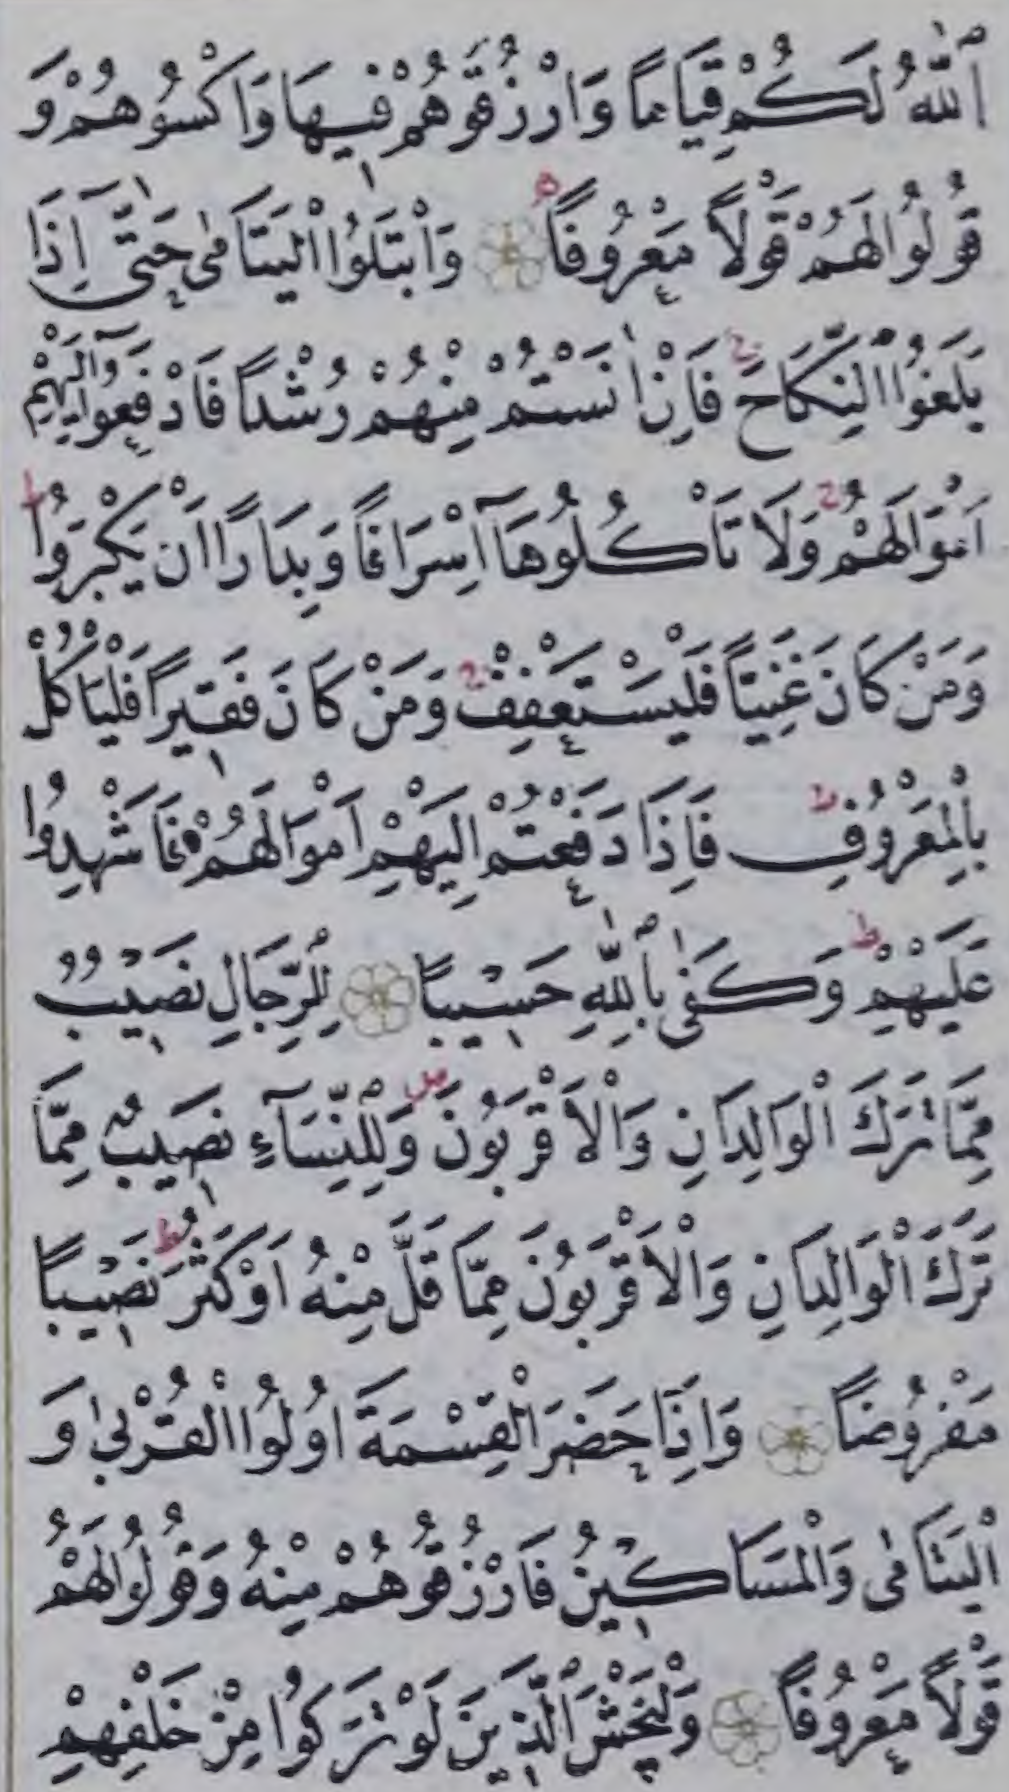 اَللّٰهُ لَكُمْ قِيَامًا وَارْزُقُوهُمْ فِيهَا وَاكْسُوهُمْ وَ
قُولُوا لَهُمْ قَوْلًا مَعْرُوفًا ۵ وَابْتَلُوا الْيَتَامٰى حَتّٰٓى اِذَا
بَلَغُوا النِّكَاحَ ۚ فَاِنْ اٰنَسْتُمْ مِنْهُمْ رُشْدًا فَادْفَعُٓوا اِلَيْهِمْ
اَمْوَالَهُمْ ۚ وَلَا تَأْكُلُوهَٓا اِسْرَافًا وَبِدَارًا اَنْ يَكْبَرُوا ۜ
وَمَنْ كَانَ غَنِيًّا فَلْيَسْتَعْفِفْ ۚ وَمَنْ كَانَ فَقِيرًا فَلْيَأْكُلْ
بِالْمَعْرُوفِ ط فَاِذَا دَفَعْتُمْ اِلَيْهِمْ اَمْوَالَهُمْ فَاَشْهِدُوا
عَلَيْهِمْ ط وَكَفٰى بِاللّٰهِ حَسِيبًا لِلرِّجَالِ نَصِيبٌ
مِمَّا تَرَكَ الْوَالِدَانِ وَالْاَقْرَبُونَ ص وَلِلنِّسَٓاءِ نَصِيبٌ مِمَّا
تَرَكَ الْوَالِدَانِ وَالْاَقْرَبُونَ مِمَّا قَلَّ مِنْهُ اَوْ كَثُرَ ط نَصِيبًا
مَفْرُوضًا وَاِذَا حَضَرَ الْقِسْمَةَ اُولُوا الْقُرْبٰى وَ
الْيَتَامٰى وَالْمَسَاكِينُ فَارْزُقُوهُمْ مِنْهُ وَقُولُوا لَهُمْ
قَوْلًا مَعْرُوفًا وَلْيَخْشَ الَّذِينَ لَوْ تَرَكُوا مِنْ خَلْفِهِمْ